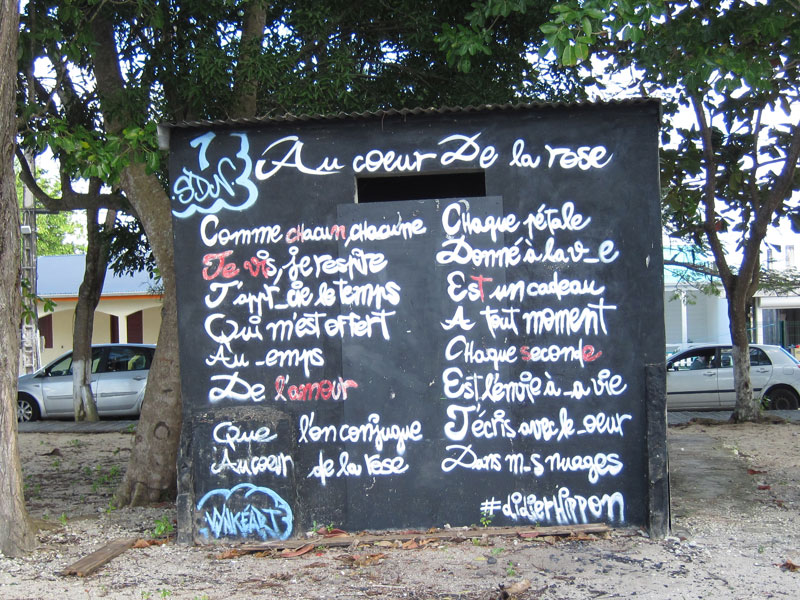 Au coeur De la rose
1
S.D.N
Comme chacun, chacune
Je vis, je respire
J'appr_cie le temps
Qui m'est offert
Au _emps
De l'amour
Que l'on conjugue
Au coeur de la rose
Chaque pétale
Donné à la v_e
Est un cadeau
A tout moment
Chaque seconde
Est l'envie à _a vie
J'écris avec le _oeur
Dans m_s nuages
#didierHippon
VNKÉART